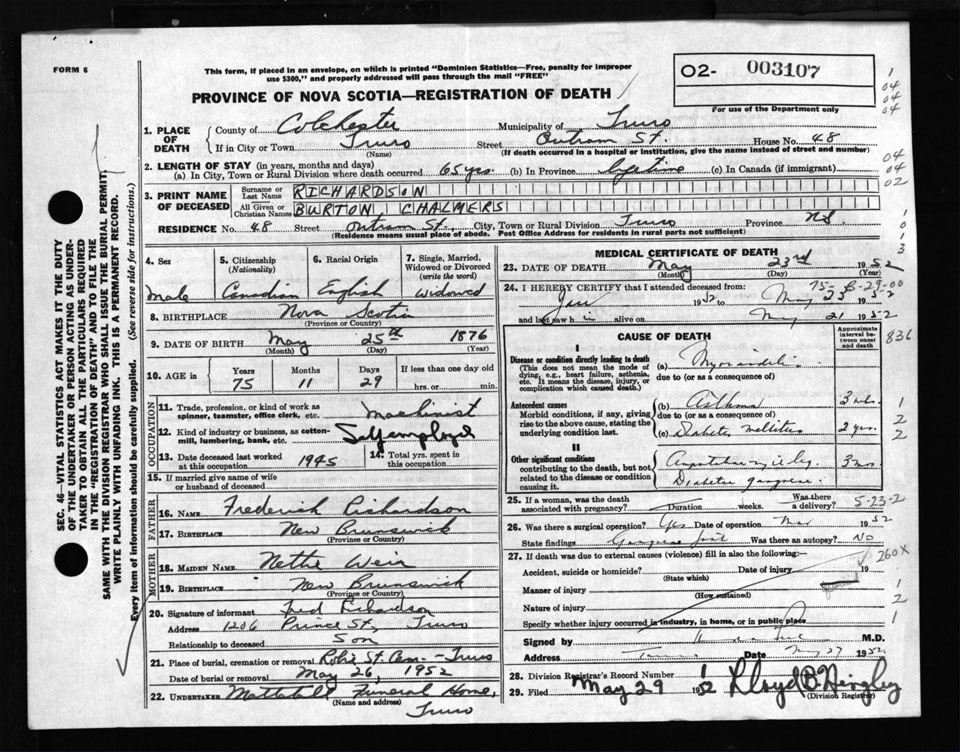 FORM 6
This form, if placed in an envelope, on which is printed "Dominion Statistics—Free, penalty for improper
use $300," and properly addressed will pass through the mail "FREE"
02- 003107
For use of the Department only
PROVINCE OF NOVA SCOTIA—REGISTRATION OF DEATH
1. PLACE OF DEATH
County of Colchester Municipality of Truro
If in City or Town Truro Street Outram St. House No. 48
(Name) (If death occurred in a hospital or institution, give the name instead of street and number)
2. LENGTH OF STAY (in years, months and days)
(a) In City, Town or Rural Division where death occurred 65 yrs. (b) In Province lifetime (c) In Canada (if immigrant)
3. PRINT NAME OF DECEASED
Surname or Last Name RICHARDSON
All Given or Christian Names BURTON CHALMERS
RESIDENCE No. 48 Street Outram St., City, Town or Rural Division Truro Province N.S.
(Residence means usual place of abode. Post Office Address for residents in rural parts not sufficient)
4. Sex Male
5. Citizenship (Nationality) Canadian
6. Racial Origin English
7. Single, Married, Widowed or Divorced (write the word) Widowed
8. BIRTHPLACE Nova Scotia
(Province or Country)
9. DATE OF BIRTH May 25th 1876
(Month) (Day) (Year)
10. AGE in Years 75 Months 11 Days 29 If less than one day old hrs. or min.
OCCUPATION
11. Trade, profession, or kind of work as spinner, teamster, office clerk, etc. Machinist
12. Kind of industry or business, as cotton-mill, lumbering, bank, etc. Self employed
13. Date deceased last worked at this occupation 1945
14. Total yrs. spent in this occupation
15. If married give name of wife or husband of deceased
FATHER
16. NAME Frederick Richardson
17. BIRTHPLACE New Brunswick
(Province or Country)
MOTHER
18. MAIDEN NAME Nettie Weir
19. BIRTHPLACE New Brunswick
(Province or Country)
20. Signature of informant Fred Richardson
Address 1206 Prince St., Truro
Relationship to deceased Son
21. Place of burial, cremation or removal Robie St. Cem.—Truro
Date of burial or removal May 26, 1952
22. UNDERTAKER Mattatall Funeral Home,
(Name and address) Truro
MEDICAL CERTIFICATE OF DEATH
23. DATE OF DEATH May 23rd 1952
(Month) (Day) (Year)
75-8-29-00
24. I HEREBY CERTIFY that I attended deceased from:
Jan 1952 to May 23 1952
and last saw h i alive on May 21 1952
CAUSE OF DEATH
Approximate interval between onset and death
836
I
Disease or condition directly leading to death
(This does not mean the mode of dying, e.g., heart failure, asthenia, etc. It means the disease, injury, or complication which caused death.)
(a)
due to (or as a consequence of)
Antecedent causes
Morbid conditions, if any, giving rise to the above cause, stating the underlying condition last.
(b) Asthma
due to (or as a consequence of)
(c) Diabetes mellitus 2 yrs.
II
Other significant conditions
contributing to the death, but not related to the disease or condition causing it.
Amputation leg
Diabetic gangrene
25. If a woman, was the death associated with pregnancy? Duration weeks. Was there a delivery? 5-23-2
26. Was there a surgical operation? Yes Date of operation Mar 1952
State findings Gangrene foot Was there an autopsy? No
27. If death was due to external causes (violence) fill in also the following:—
260X
Accident, suicide or homicide? Date of injury 19
(State which)
Manner of injury
(How sustained)
Nature of injury
Specify whether injury occurred in industry, in home, or in public place
Signed by M.D.
Address Truro Date May 27 1952
28. Division Registrar's Record Number
29. Filed May 29 1952 Lloyd
(Division Registrar)
SEC. 46—VITAL STATISTICS ACT MAKES IT THE DUTY
OF THE UNDERTAKER OR PERSON ACTING AS UNDER-
TAKER TO OBTAIN ALL THE PARTICULARS REQUIRED
IN THE "REGISTRATION OF DEATH" AND TO FILE THE
SAME WITH THE DIVISION REGISTRAR WHO SHALL ISSUE THE BURIAL PERMIT.
WRITE PLAINLY WITH UNFADING INK. THIS IS A PERMANENT RECORD.
Every item of information should be carefully supplied. (See reverse side for instructions.)